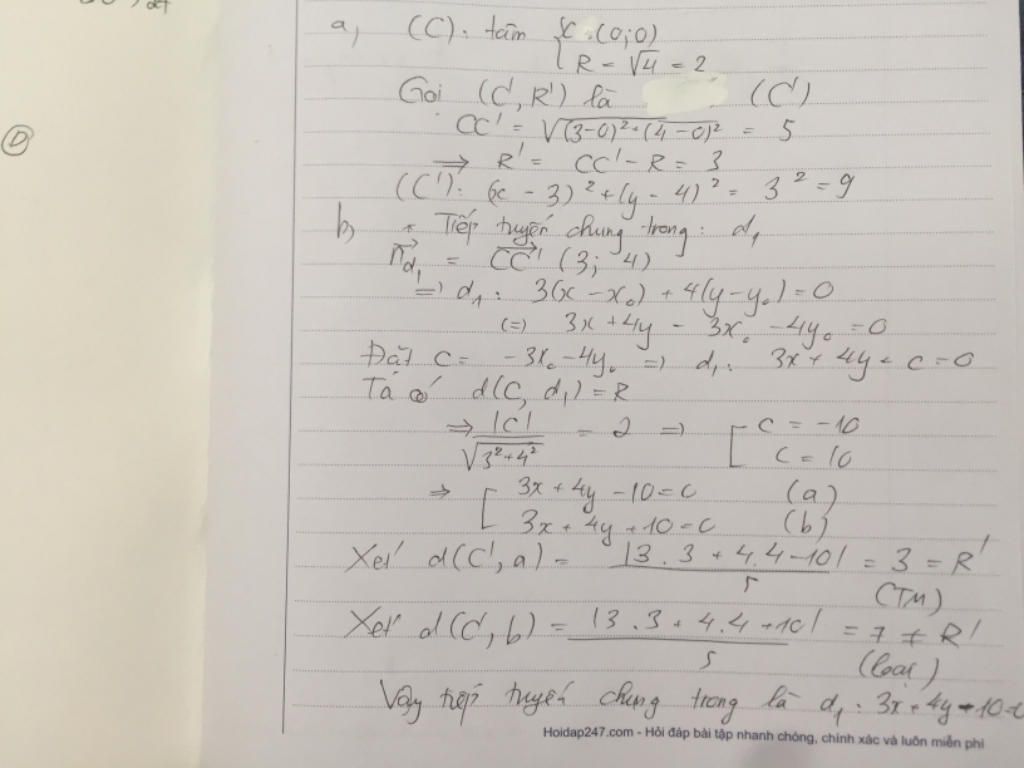 a, (C): tâm { C (0;0)
R = √4 = 2
Gọi (C', R') là (C')
CC' = √(3-0)²+(4-0)² = 5
⇒ R' = CC' - R = 3
(C'): (x - 3)² + (y - 4)² = 3² = 9
b, * Tiếp tuyến chung trong: d₁
n⃗d₁ = CC'⃗ (3; 4)
⇒ d₁: 3(x - x₀) + 4(y - y₀) = 0
(=) 3x + 4y - 3x₀ - 4y₀ = 0
Đặt c = -3x₀ - 4y₀ ⇒ d₁: 3x + 4y + c = 0
Ta có d(C, d₁) = R
⇒ |C| / √3²+4² = 2 ⇒ [ c = -10
c = 10
⇒ [ 3x + 4y - 10 = 0 (a)
3x + 4y + 10 = 0 (b)
Xét d(C', a) = |3.3 + 4.4 - 10| / 5 = 3 = R'
(TM)
Xét d(C', b) = |3.3 + 4.4 + 10| / 5 = 7 ≠ R'
(loại)
Vậy tiếp tuyến chung trong là d₁: 3x + 4y - 10 = 0
Hoidap247.com - Hỏi đáp bài tập nhanh chóng, chính xác và luôn miễn phí